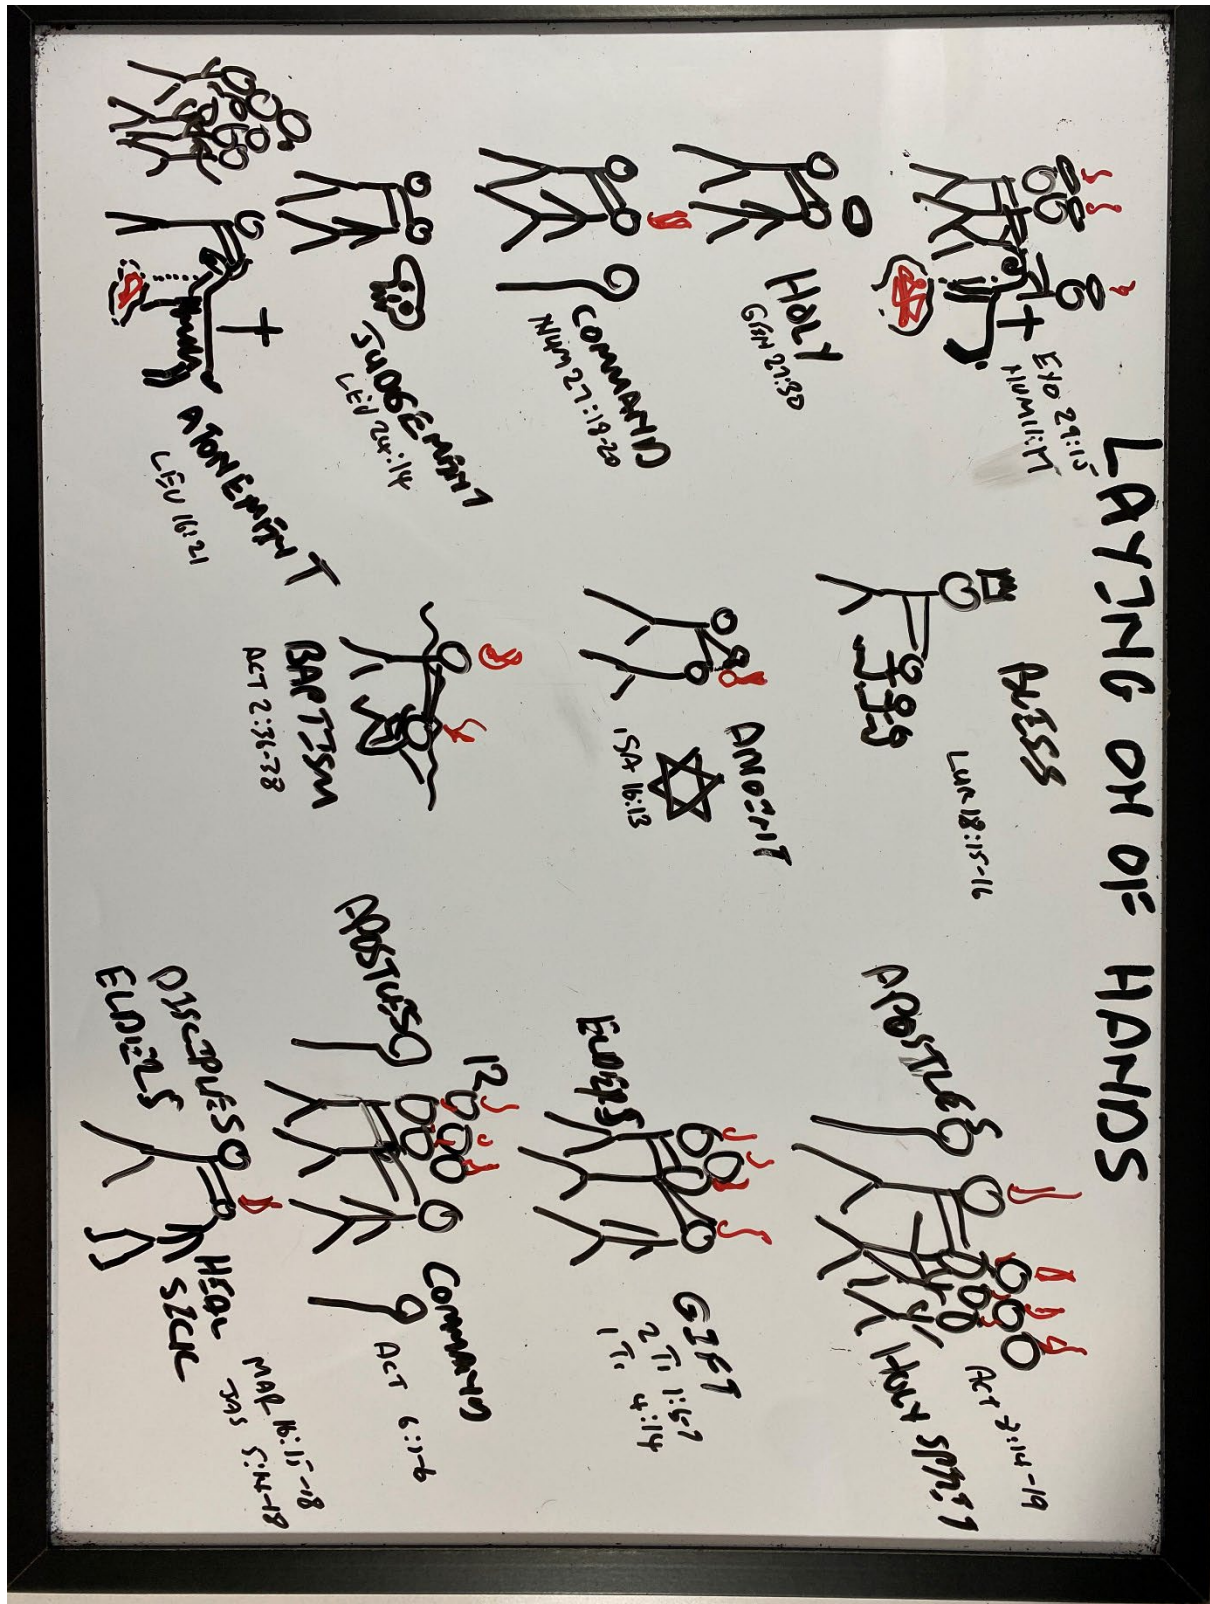 LAYING ON OF HANDS
EXO 29:15
HOLY
COMMAND
NUM 27:18-20
JUDGEMENT
LEV 24:14
ATONEMENT
LEV 16:21
BLESS
LUK 18:15-16
ANOINT
ISA 16:13
BAPTISM
ACT 2:36-38
APOSTLES
HOLY SPIRIT
ELDERS
GIFT
2 TI 1:6-7
1 TI 4:14
APOSTLES
12
COMMAND
ACT 6:1-6
DISCIPLES
ELDERS
HEAL
SICK
MAR 16:15-18
JAS 5:14-18